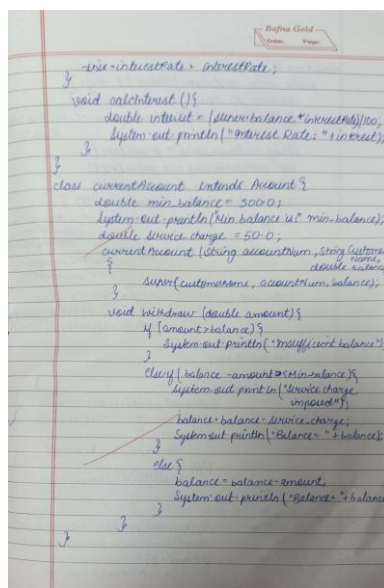 Bafna Gold
Date: Page:
this.interestRate = interestRate;
}
void calcInterest (){
double interest = (super.balance * interestRate)/100;
System.out.println("Interest Rate: "+interest);
}
}
class currentAccount extends Account {
double min_balance = 500.0;
System.out.println("Min balance is:" min_balance);
double service charge = 50.0;
currentAccount (String accountNum, String Customer
Name,
{ double balance
super(customerName, accountNum, balance);
}
void withdraw (double amount){
if (amount>balance){
System.out.println("Insufficient balance")
}
else if (balance-amount <Min-balance){
System.out.println("Service charge
imposed");
balance=balance-service_charge;
System.out.println("Balance= "+balance);
}
else {
balance=balance-amount;
System.out.println("Balance= "+balance
}
}
}